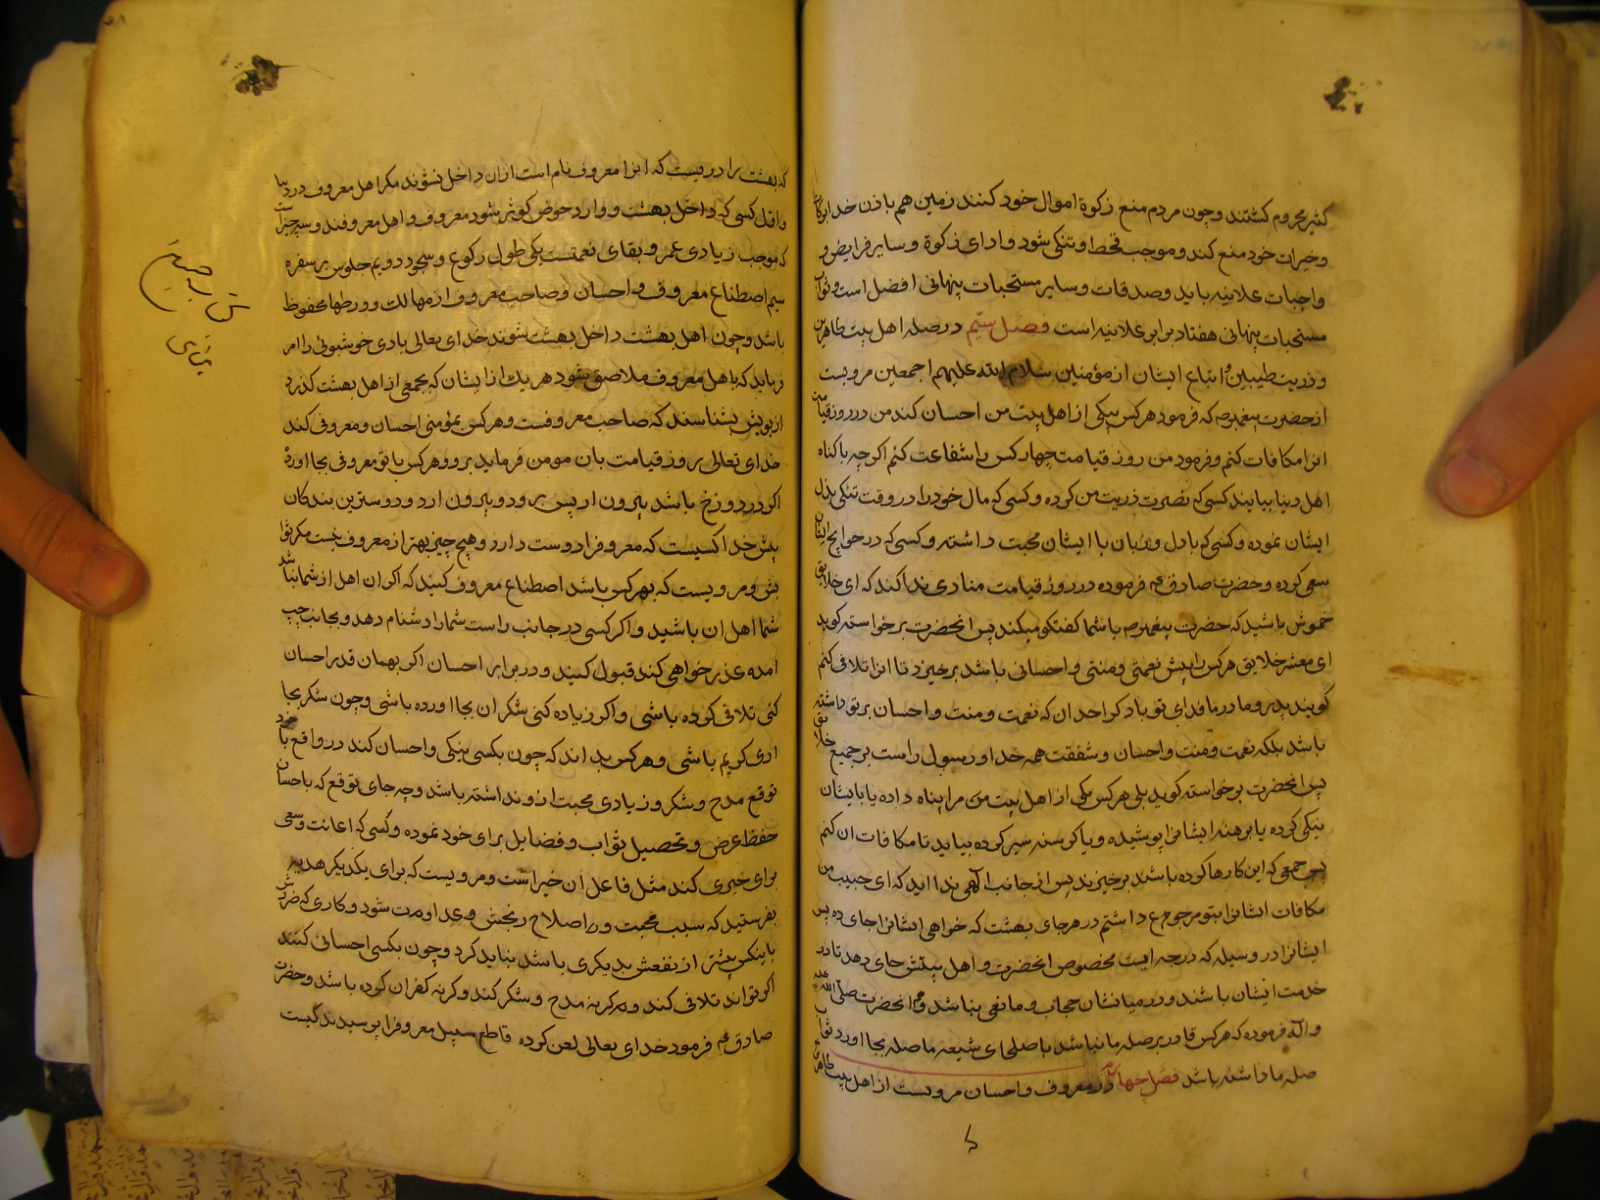 کثیر محروم کشتند و چون مردم منع زکوة اموال خود کنند زمین هم باذن خدا برکات
و خیرات خود منع کند و موجب قحط و تنکی شود و ادای زکوة و سایر فرایض و
واجبات علانیه باید و صدقات و سایر مستحبات پنهانی افضل است و ثواب
مستحبات پنهانی هفتاد برابر علانیه است فصل سیم در صله اهل بیت طاهرین
و ذریت طیبین و اتباع ایشان از مؤمنین سلام الله علیهم اجمعین مرویست
از حضرت پیغمبر ص که فرمود هر کس بیکی از اهل بیت من احسان کند من در روز قیامت
انرا مکافات کنم و فرمود من روز قیامت چهار کس را شفاعت کنم اکرچه با کناه
اهل دنیا بیایند کسی که نصرت ذریت من کرده و کسی که مال خود را در وقت تنکی بذل
ایشان نموده و کسی که با دل و زبان با ایشان محبت داشته و کسی که در حوایج ایشان
سعی کرده و حضرت صادق ع فرموده در روز قیامت منادی ندا کند که ای خلایق
خموش باشید که حضرت پیغمبر ص با شما کفتکو میکند پس انحضرت برخواسته کوید
ای معشر خلایق هر کس را پیش نعمتی و منتی و احسانی باشد برخیزد تا انرا تلافی کنم
کویند پدر و مادر ما فدای تو باد کرا حد ان که نعمت و منت و احسان بر تو داشته
باشد بلکه نعمت و منت و احسان و شفقت همه خدا و رسول راست بر جمیع خلایق
پس انحضرت برخواسته کوید بلی هر کس یکی از اهل بیت من را پناه داده یا با ایشان
نیکی کرده یا برهنه ایشانرا پوشیده و یا کرسنه سیر کرده بیاید تا مکافات ان کنم
پس جمعی که این کارها کرده باشند برخیزند پس از جانب الهی ندا اید که ای حبیب من
مکافات ایشانرا بتو مرجوع داشتم در هر جای بهشت که خواهی ایشانرا جای ده پس
ایشانرا در وسیله که درجه ایست مخصوص انحضرت و اهل بیتش جای دهد تا در
خدمت ایشان باشند و در میانشان حجاب و مانعی نباشد و هم انحضرت صلی الله علیه
و اله فرموده که هر کس قادر بر صله ما نباشد با صلحای شیعه ما صله بجا اورد ثواب
صله ما داشته باشد فصل چهارم در معروف و احسان مرویست از اهل بیت طاهرین
که بهشت را دریست که انرا معروف نام است ازان داخل نشوند مکر اهل معروف در دنیا
و اول کسی که داخل بهشت و وارد حوض کوثر شود معروف و اهل معروفند و سه چیز است
که موجب زیادی عمر و بقای نعمتست یکی طول رکوع و سجود دویم جلوس بر سفره
سیم اصطناع معروف و احسان و صاحب معروف از مهالک و ورطها محفوظ
باشد و چون اهل بهشت داخل بهشت شوند خدای تعالی بادی خوشبوئی را امر
فرماید که با اهل معروف ملاصق شود هر یک از ایشان که بجمعی از اهل بهشت کذرد
از بویش بشناسند که صاحب معروفست و هر کس بمؤمنی احسان و معروفی کند
خدای تعالی بروز قیامت بان مومن فرماید برو و هر کس با تو معروفی بجا اورده
اکر در دوزخ باشد بیرون ار پس برود و بیرون ارد و دوسترین بندکان
پیش خدا کسیست که معروف را دوست دارد و هیچ چیز بهتر از معروف نیست مکر ثوا
بش و مرویست که بهر کس باشد اصطناع معروف کنید که اکر ان اهل ان نباشد
شما اهل ان باشید و اکر کسی در جانب راست شما را دشنام دهد و بجانب چپ
امده عذرخواهی کند قبول کنید و در برابر احسان اکر بهمان قدر احسان
کنی تلافی کرده باشی و اکر زیاده کنی شکر ان بجا اورده باشی و چون شکر بجا
اری کریم باشی و هر کس بداند که چون بکسی نیکی و احسان کند در واقع با خود
توقع مدح و شکر و زیادی محبت ازو نداشته باشد و چه جای توقع که با احسان
حفظ عرض و تحصیل ثواب و فضایل برای خود نموده و کسی که اعانت و سعی
برای خیری کند مثل فاعل ان خیر است و مرویست که برای یکدیکر هدیه
بفرستید که سبب محبت و اصلاح رنجش و عداوت شود و کاری که ضررش
با نیکس بیشتر از نفعش بدیکری باشد نباید کرد و چون بکسی احسانی کنند
اکر تواند تلافی کند و اکر نه مدح و شکر کند و کر نه کفران کرده باشد و حضرت
صادق ع فرمود خدای تعالی لعن کرده قاطع سبیل معروف را پرسیدند کیست